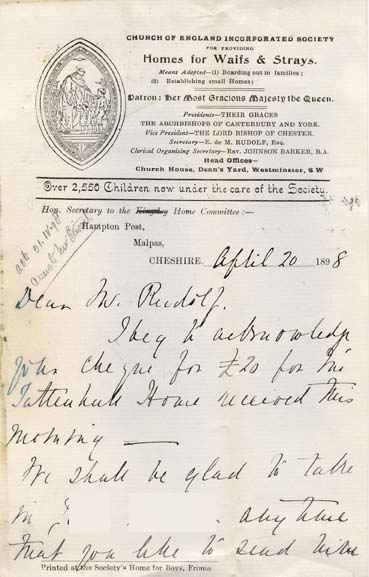 CHURCH OF ENGLAND INCORPORATED SOCIETY
FOR PROVIDING
Homes for Waifs & Strays.
Means Adopted—(1) Boarding out in families;
(2) Establishing small Homes;
Patron: Her Most Gracious Majesty the Queen.
Presidents—THEIR GRACES
THE ARCHBISHOPS OF CANTERBURY AND YORK.
Vice President—THE LORD BISHOP OF CHESTER.
Secretary—E. de M. RUDOLF, Esq.
Clerical Organising Secretary—Rev. JOHNSON BARKER, B.A.
Head Offices—
Church House, Dean's Yard, Westminster, S.W
Over 2,550 Children now under the care of the Society.
Hon. Secretary to the Home Committee:—
Hampton Post,
Malpas,
CHESHIRE. April 20 1898
Dear Mr. Rudolf.
I beg to acknowledge
your cheque for £20 for the
Tattenhall Home received this
morning —
We shall be glad to take
in any time
that you like to send him
Printed at the Society's Home for Boys, Frome.